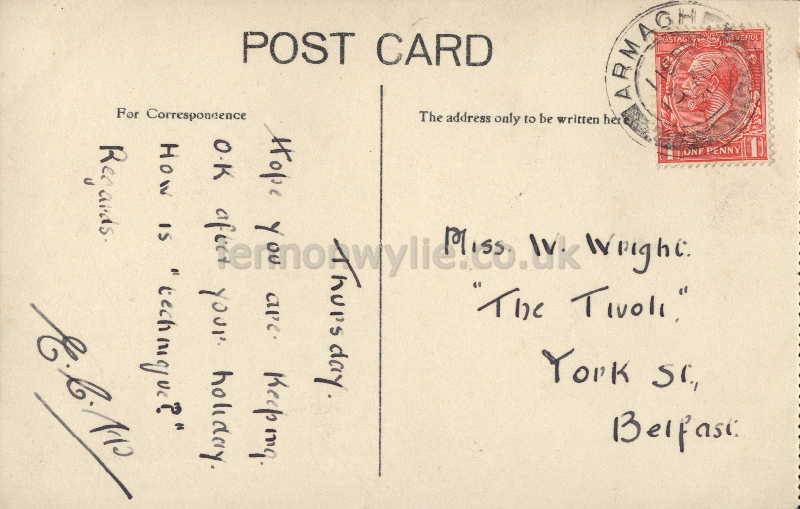 POST CARD
For Correspondence
The address only to be written here
ARMAGH
POSTAGE REVENUE
1 ONE PENNY 1
Thursday.
Hope you are keeping
O.K after your holiday.
How is "technique?"
Regards.
Miss. W. Wright.
"The Tivoli,"
York St.,
Belfast.
lennonwylie.co.uk